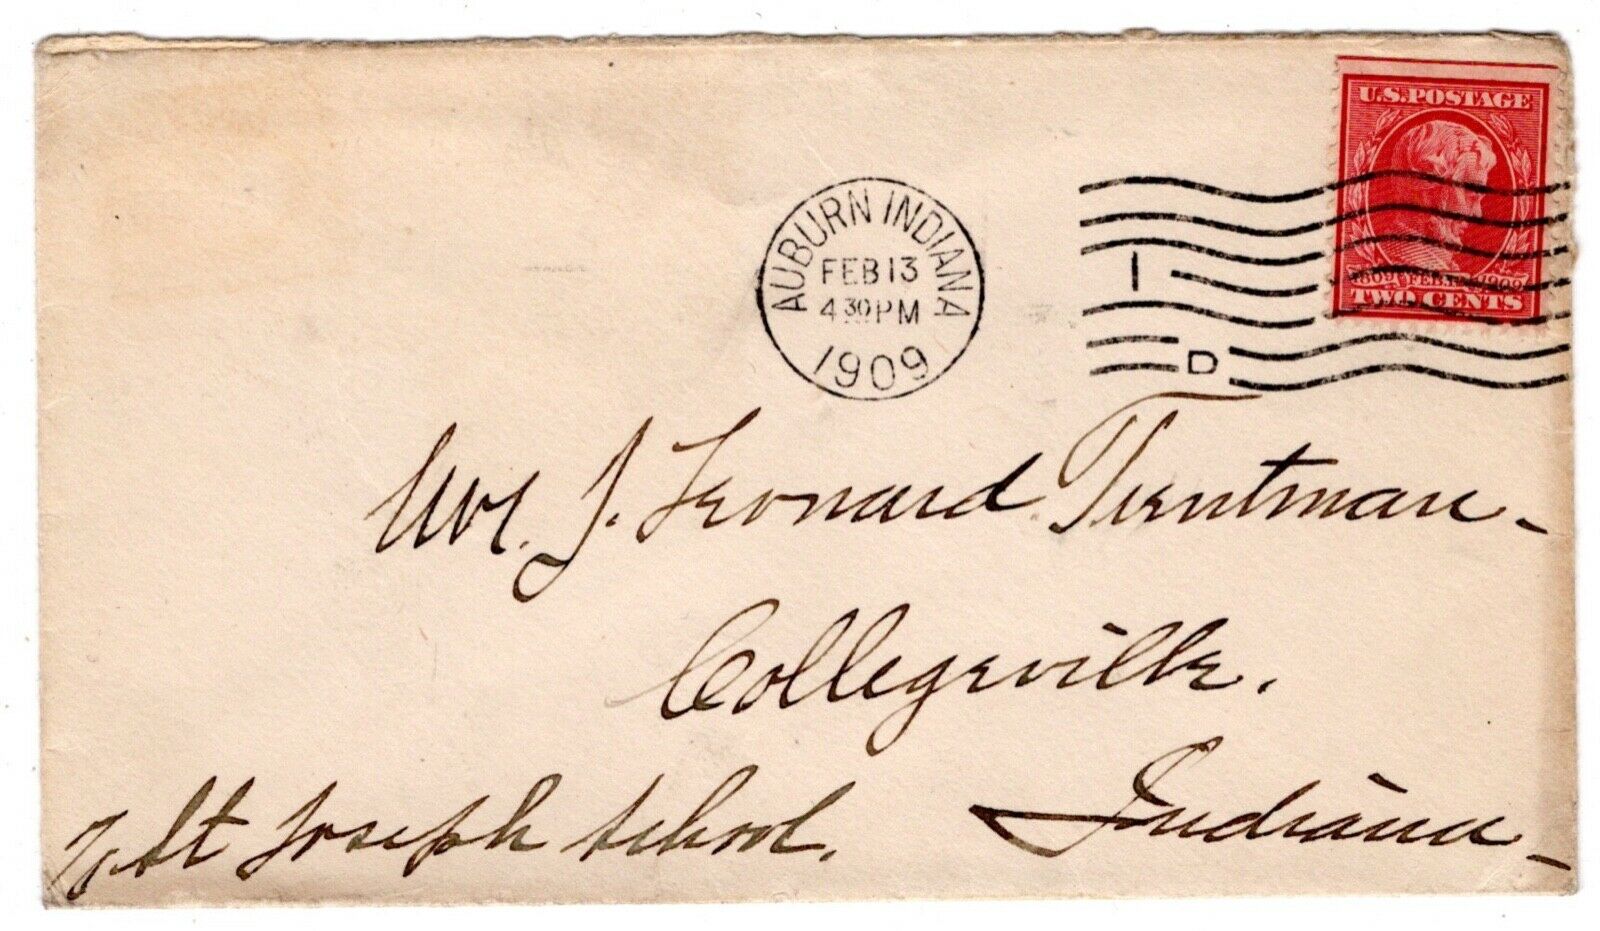 U.S. POSTAGE
1809 FEB. 12 1909
TWO CENTS
AUBURN INDIANA
FEB 13
4 30 PM
1909
1
D
Mr. J. Leonard Trentman
Collegeville.
Indiana
℅ St Joseph School.